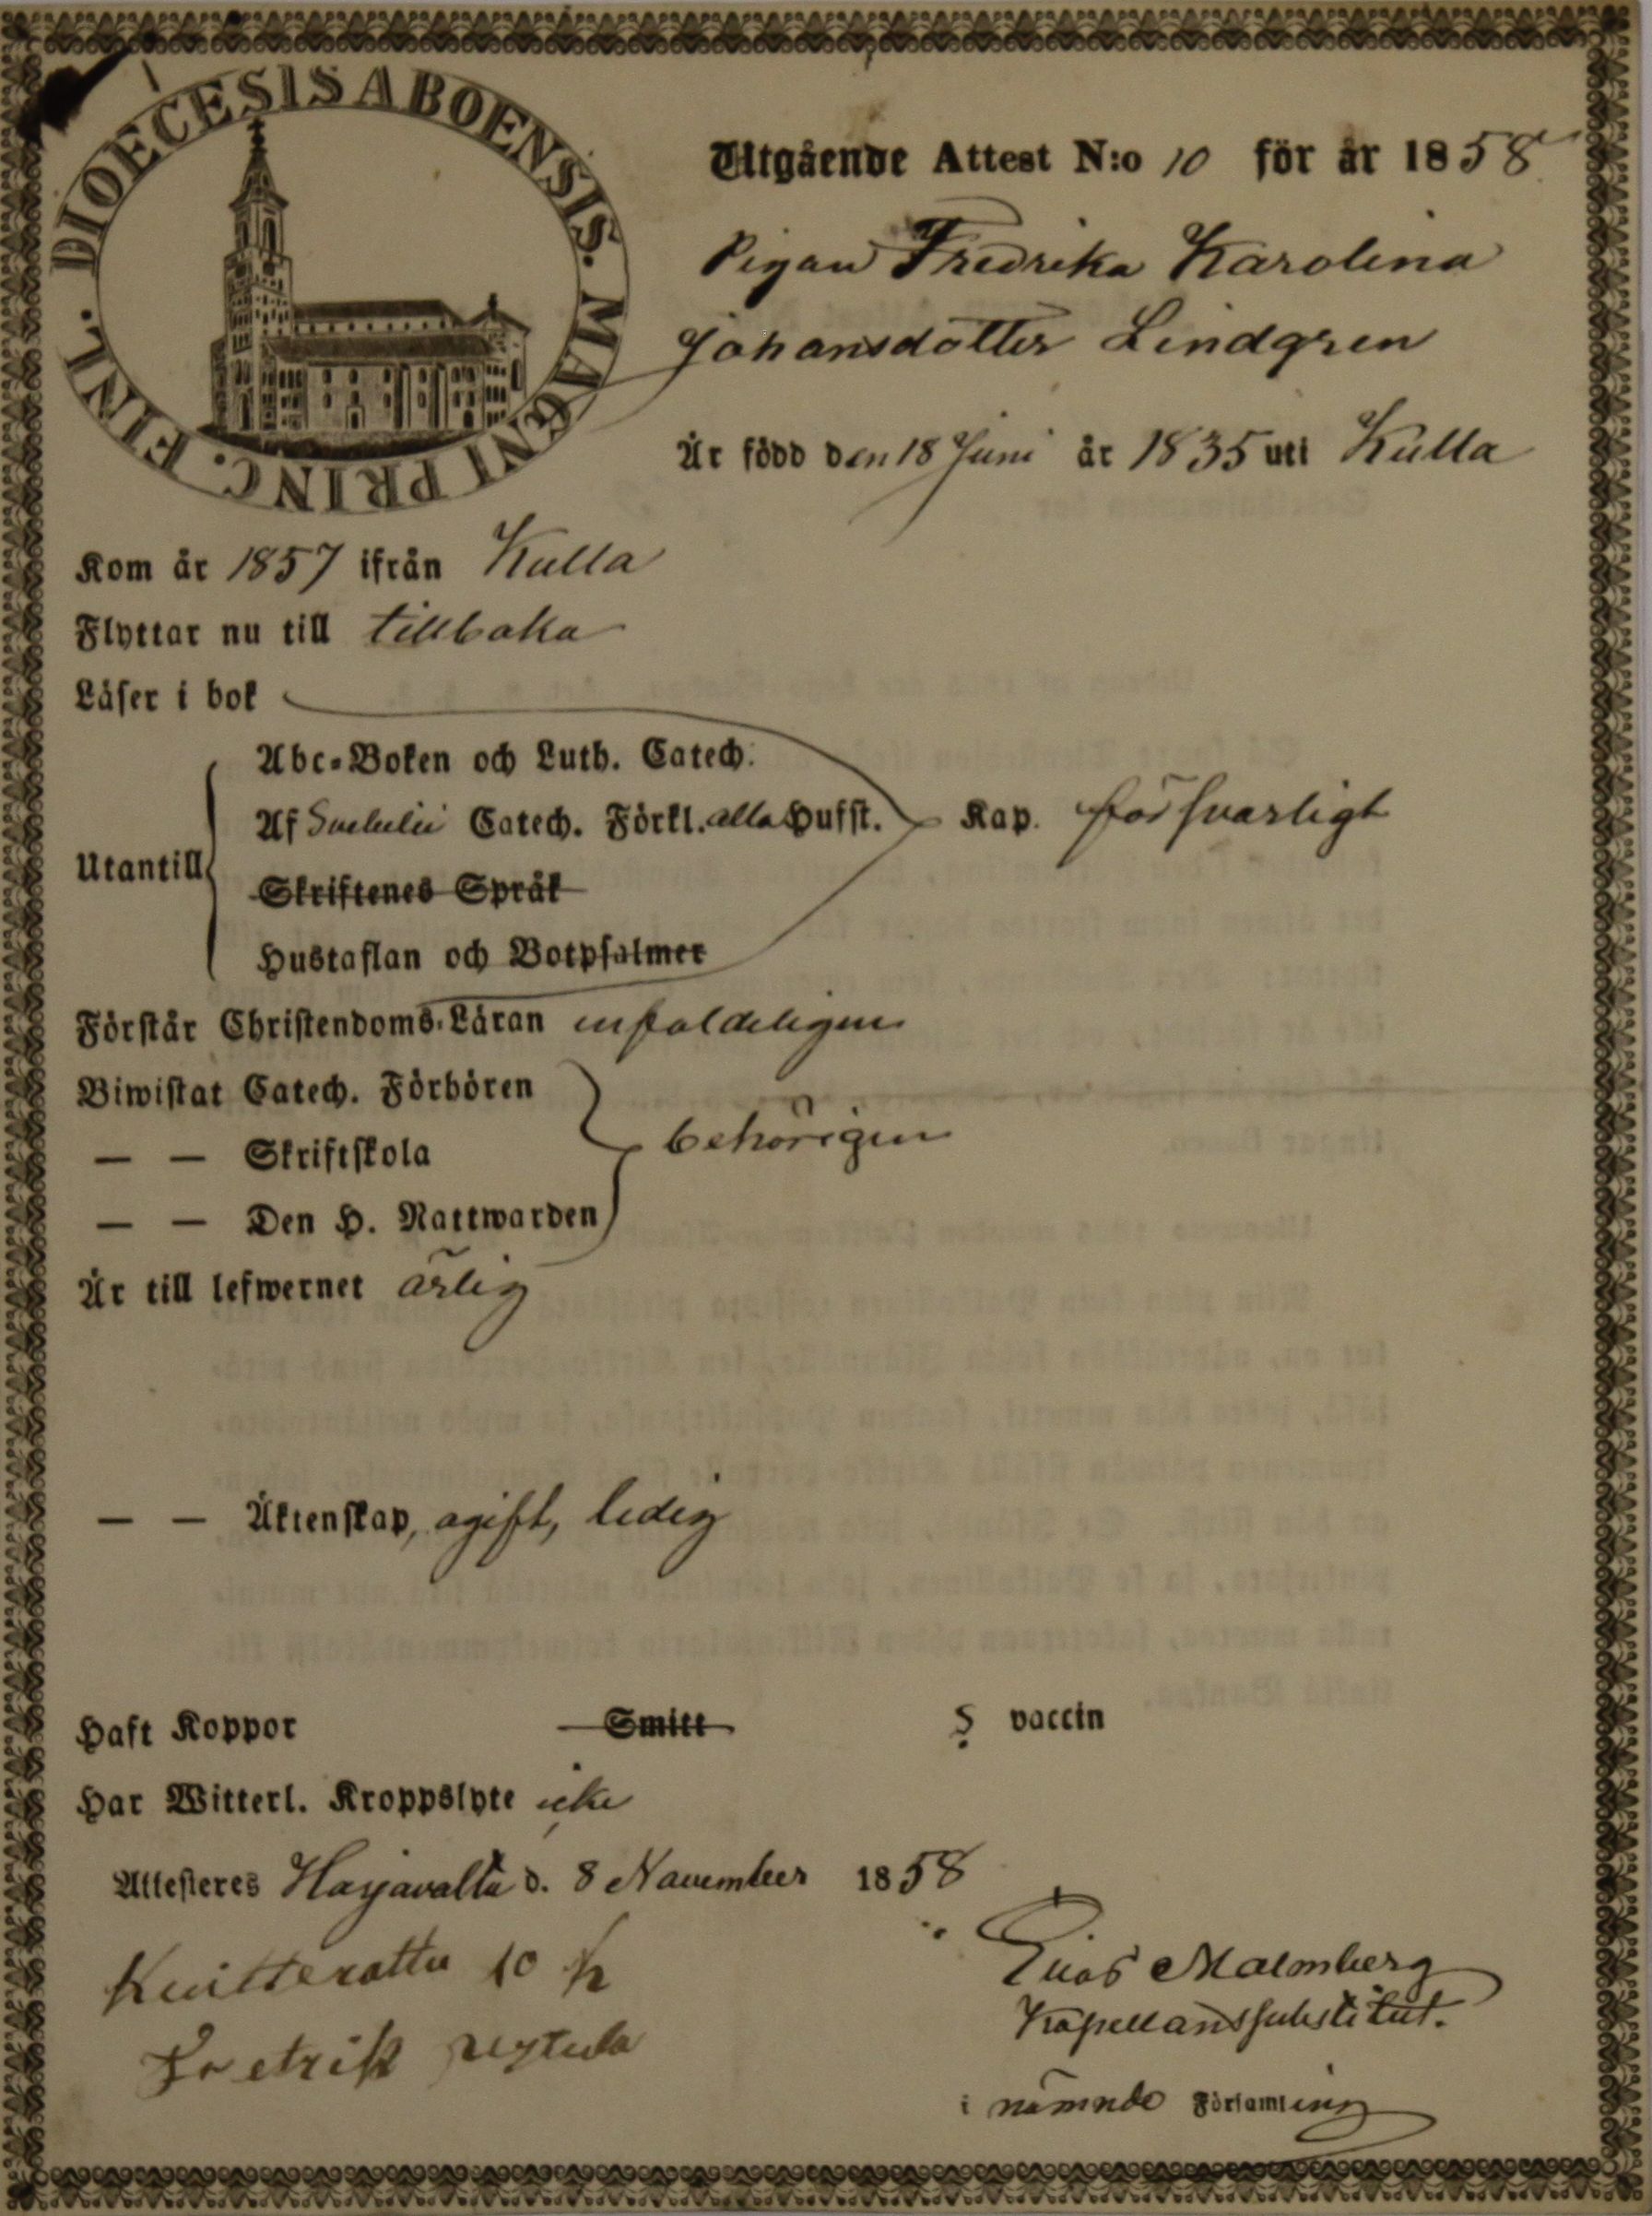 DIOECESIS ABOENSIS. MAGNI PRINC. FINL.
Utgående Attest N:o 10 för år 1858
Pigan Fredrika Karolina
Johansdotter Lindgren
Är född den 18 Juni år 1835 uti Kulla
Kom år 1857 ifrån Kulla
Flyttar nu till tillbaka
Läser i bok
Abc-Boken och Luth. Catech.
Af Svebelii Catech. Förkl. alla Hufst. Kap. försvarligt
Utantill
Skriftenes Språk
Hustaflan och Botpsalmer
Förstår Christendoms-Läran enfaldeligen
Biwistat Catech. Förhören
— — Skriftskola behörigen
— — Den H. Nattwarden
Är till lefwernet ärlig
— — Äktenskap, ogift, ledig
Haft Koppor Smitt § vaccin
Har Witterl. Kroppslyte icke
Attesteres Harjavalta d. 8 November 1858
Kvitterattu 10 k
Malmberg
Kapellanssubstitut.
i nämnde Församling